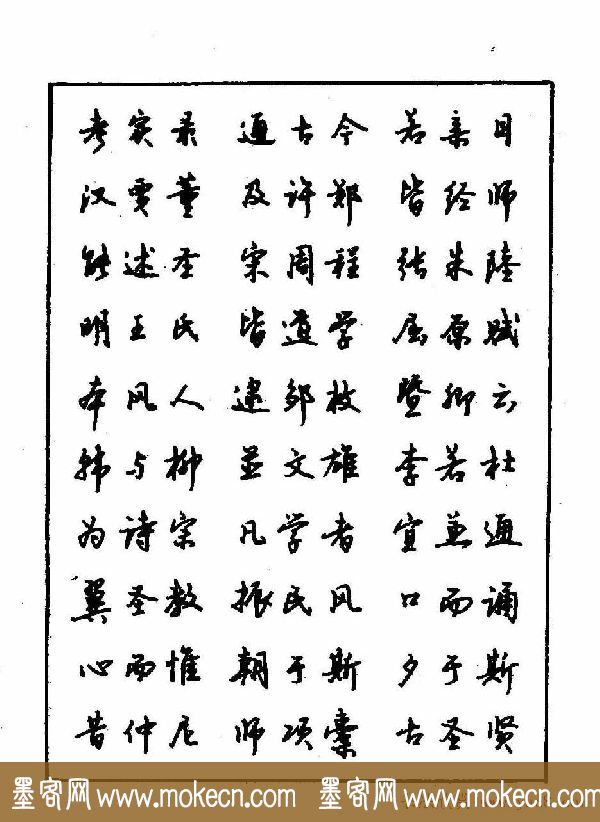 考实录 通古今 若亲目
汉贾董 及许郑 皆经师
能述圣 宋周程 张朱陆
明王氏 皆道学 屈原赋
本风人 逮邹枚 暨卿云
韩与柳 並文雄 李若杜
为诗宗 凡学者 宜兼通
翼圣教 振民风 口而诵
心而惟 朝于斯 夕于斯
昔仲尼 师项橐 古圣贤
墨客网 www.mokecn.com 墨客网 www.mokecn.com